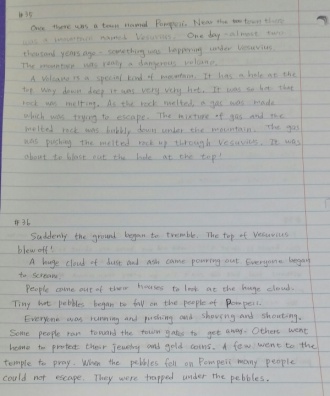 #35
Once there was a town named Pompeii. Near the town there
was a mountain named Vesuvius. One day - almost two
thousand years ago - something was happening under Vesuvius.
The mountain was really a dangerous volcano.
A volcano is a special kind of mountain. It has a hole at the
top. Way down deep it was very very hot. It was so hot that
rock was melting. As the rock melted a gas was made
which was trying to escape. The mixture of gas and the
melted rock was bubbly down under the mountain. The gas
was pushing the melted rock up through Vesuvius. It was
about to blast out the hole at the top!
#36
Suddenly the ground began to tremble. The top of Vesuvius
blew off!
A huge cloud of dust and ash came pouring out. Everyone began
to scream.
People came out of their houses to look at the huge cloud.
Tiny hot pebbles began to fall on the people of Pompeii.
Everyone was running and pushing and shoving and shouting.
Some people ran toward the town gates to get away. Others went
home to protect their jewelry and gold coins. A few went to the
temple to pray. When the pebbles fell on Pompeii many people
could not escape. They were trapped under the pebbles.